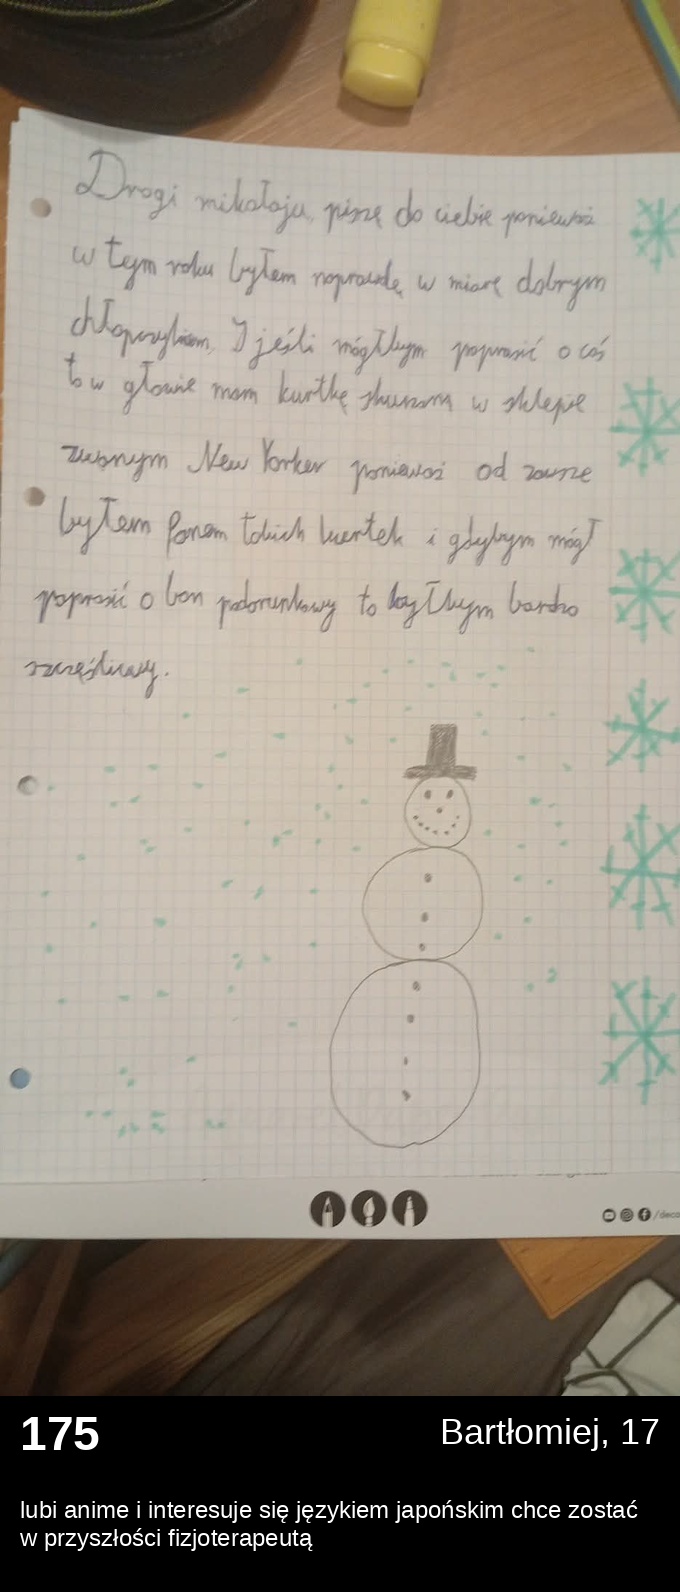 Drogi mikołaju, piszę do ciebie ponieważ
w tym roku byłem naprawdę w miarę dobrym
chłopczykiem, I jeśli mógłbym poprosić o coś
to w głowie mam kurtkę skurzaną w sklepie
zwanym New Yorker ponieważ od zawsze
byłem Fanem takich kurtek i gdybym mógł
poprosić o bon podarunkowy to byłbym bardzo
szczęśliwy.
/deco
175
Bartłomiej, 17
lubi anime i interesuje się językiem japońskim chce zostać
w przyszłości fizjoterapeutą